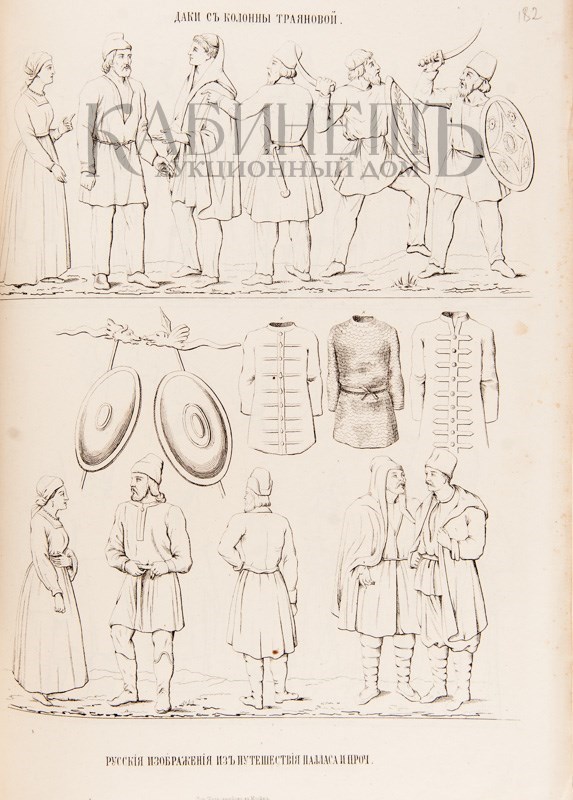 ДАКИ СЪ КОЛОННЫ ТРАЯНОВОЙ.
182
КАБИНЕТЪ
АУКЦИОННЫЙ ДОМ
РУССКІЯ ИЗОБРАЖЕНІЯ ИЗЪ ПУТЕШЕСТВІЯ ПАЛЛАСА И ПРОЧ.